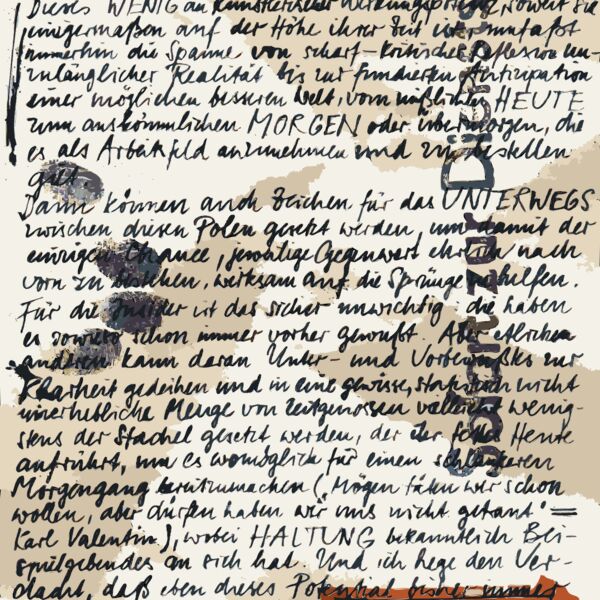 Dieses WENIG an künstlerischer Wirkungspotenz, soweit sie
einigermaßen auf der Höhe ihrer Zeit ist, umfaßt
immerhin die Spanne von scharf-kritischer Reflexion un-
zulänglicher Realität bis zur fundierten Antizipation
einer möglichen besseren Welt, vom mißlichen HEUTE
zum auskömmlichen MORGEN oder Übermorgen, die
es als Arbeitsfeld anzunehmen und zu bestellen
gilt.
Dann können auch Zeichen für das UNTERWEGS
zwischen diesen Polen gesetzt werden, um damit der
einzigen Chance, jeweilige Gegenwart ehrlich nach
vorn zu bestehen, wirksam auf die Sprünge zu helfen.
Für die Insider ist das sicher unwichtig – die haben
es sowieso schon immer vorher gewußt. Aber etlichen
anderen kann daran Unter- und Vorbewußtes zur
Klarheit gedeihen und in eine gewisse, statistisch nicht
unerhebliche Menge von Zeitgenossen vielleicht wenig-
stens der Stachel gesetzt werden, der ihr fettes Heute
aufrührt, um es womöglich für einen schlankeren
Morgengang bereitzumachen („Mögen täten wir schon
wollen, aber dürfen haben wir uns nicht getraut" =
Karl Valentin), wobei HALTUNG bekanntlich Bei-
spielgebendes an sich hat. Und ich hege den Ver-
dacht, daß eben dieses Potential bisher immer